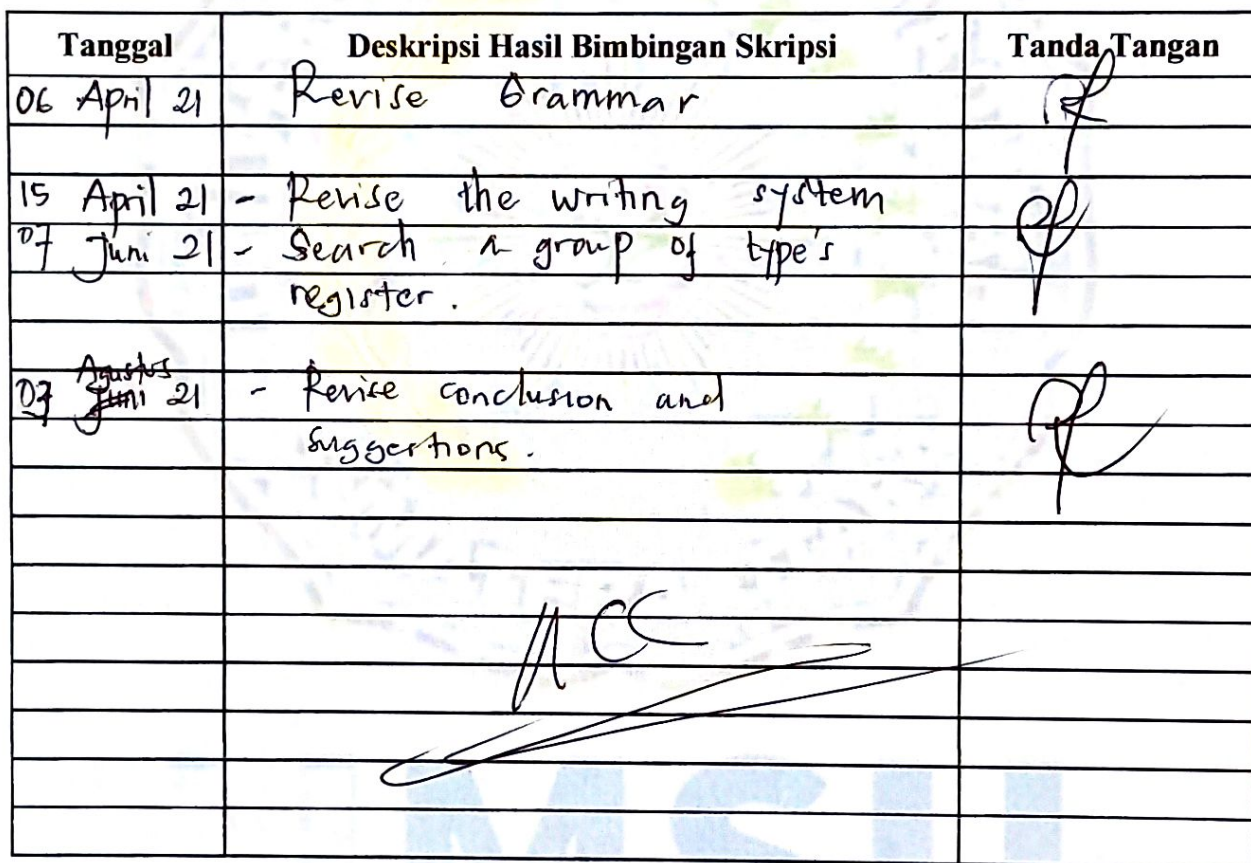 Tanggal Deskripsi Hasil Bimbingan Skripsi Tanda Tangan
06 April 21 Revise Grammar
15 April 21 - Revise the writing system
07 Juni 21 - Search a group of type's
register.
Agustus
07 Juni 21 - Revise conclusion and
suggestions.
ACC
UMSU